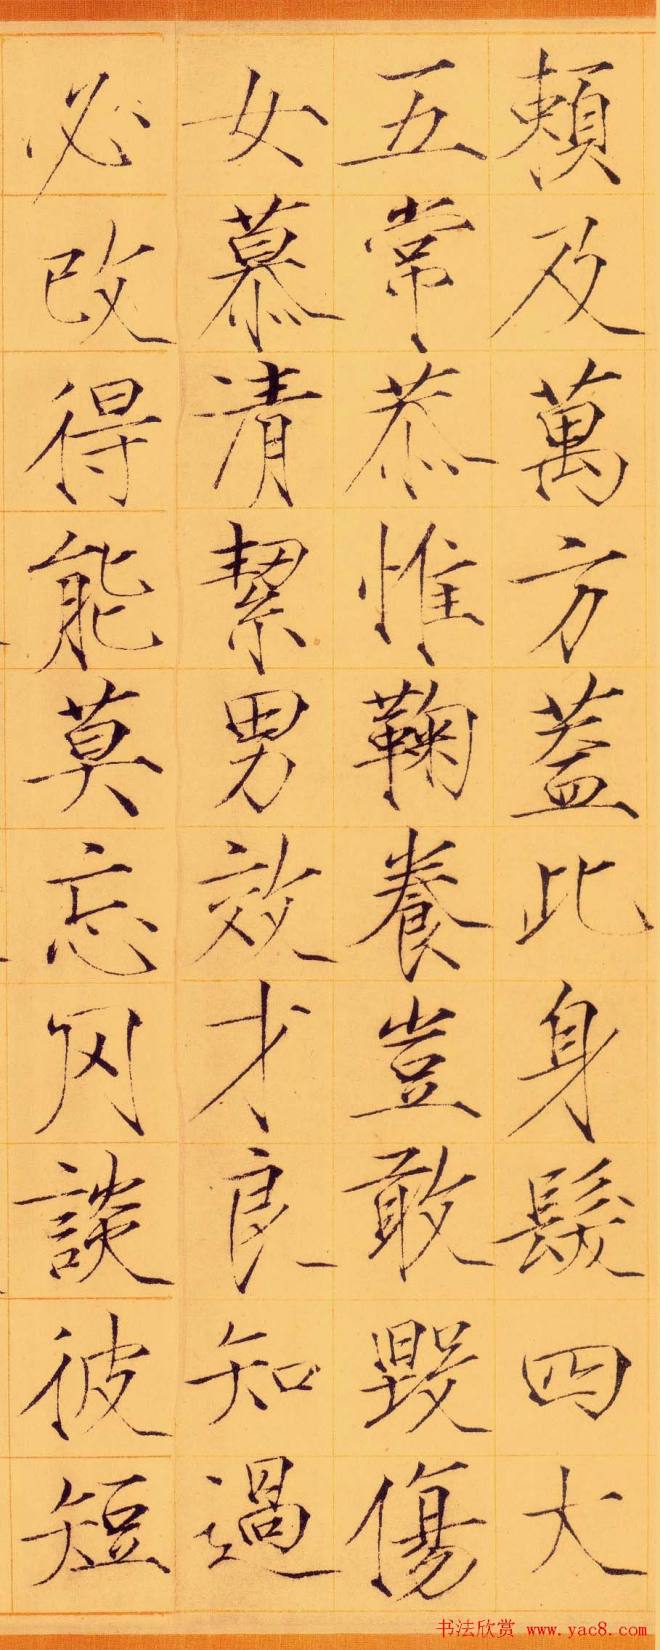 頼及萬方蓋此身髮四大
五常恭惟鞠養豈敢毀傷
女慕清絜男效才良知過
必改得能莫忘罔談彼短
书法欣赏 www.yac8.com